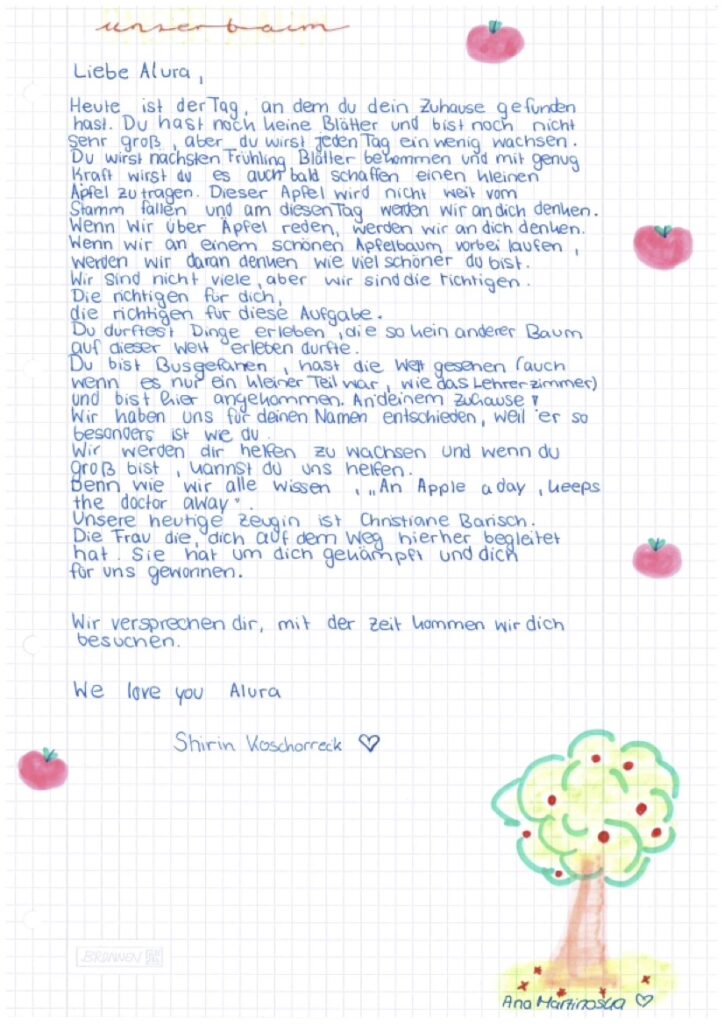 unser baum
Liebe Alura,
Heute ist der Tag, an dem du dein Zuhause gefunden
hast. Du hast noch keine Blätter und bist noch nicht
sehr groß, aber du wirst jeden Tag ein wenig wachsen.
Du wirst nächsten Frühling Blätter bekommen und mit genug
Kraft wirst du es auch bald schaffen einen kleinen
Apfel zu tragen. Dieser Apfel wird nicht weit vom
Stamm fallen und am diesen Tag werden wir an dich denken.
Wenn wir über Äpfel reden, werden wir an dich denken.
Wenn wir an einem schönen Apfelbaum vorbei laufen,
werden wir daran denken wie viel schöner du bist.
Wir sind nicht viele, aber wir sind die richtigen.
Die richtigen für dich,
die richtigen für diese Aufgabe.
Du durftest Dinge erleben, die so kein anderer Baum
auf dieser Welt erleben durfte.
Du bist Busgefahren, hast die Welt gesehen (auch
wenn es nur ein kleiner Teil war, wie das Lehrerzimmer)
und bist hier angekommen. An deinem Zuhause!
Wir haben uns für deinen Namen entschieden, weil er so
besonders ist wie du.
Wir werden dir helfen zu wachsen und wenn du
groß bist, kannst du uns helfen.
Denn wie wir alle wissen, „An Apple a day, keeps
the doctor away".
Unsere heutige Zeugin ist Christiane Barisch.
Die Frau die, dich auf dem Weg hierher begleitet
hat. Sie hat um dich gekämpft und dich
für uns gewonnen.
Wir versprechen dir, mit der Zeit kommen wir dich
besuchen.
We love you Alura
Shirin Koschorreck ♡
BRUNNEN
Ana Martinoska ♡